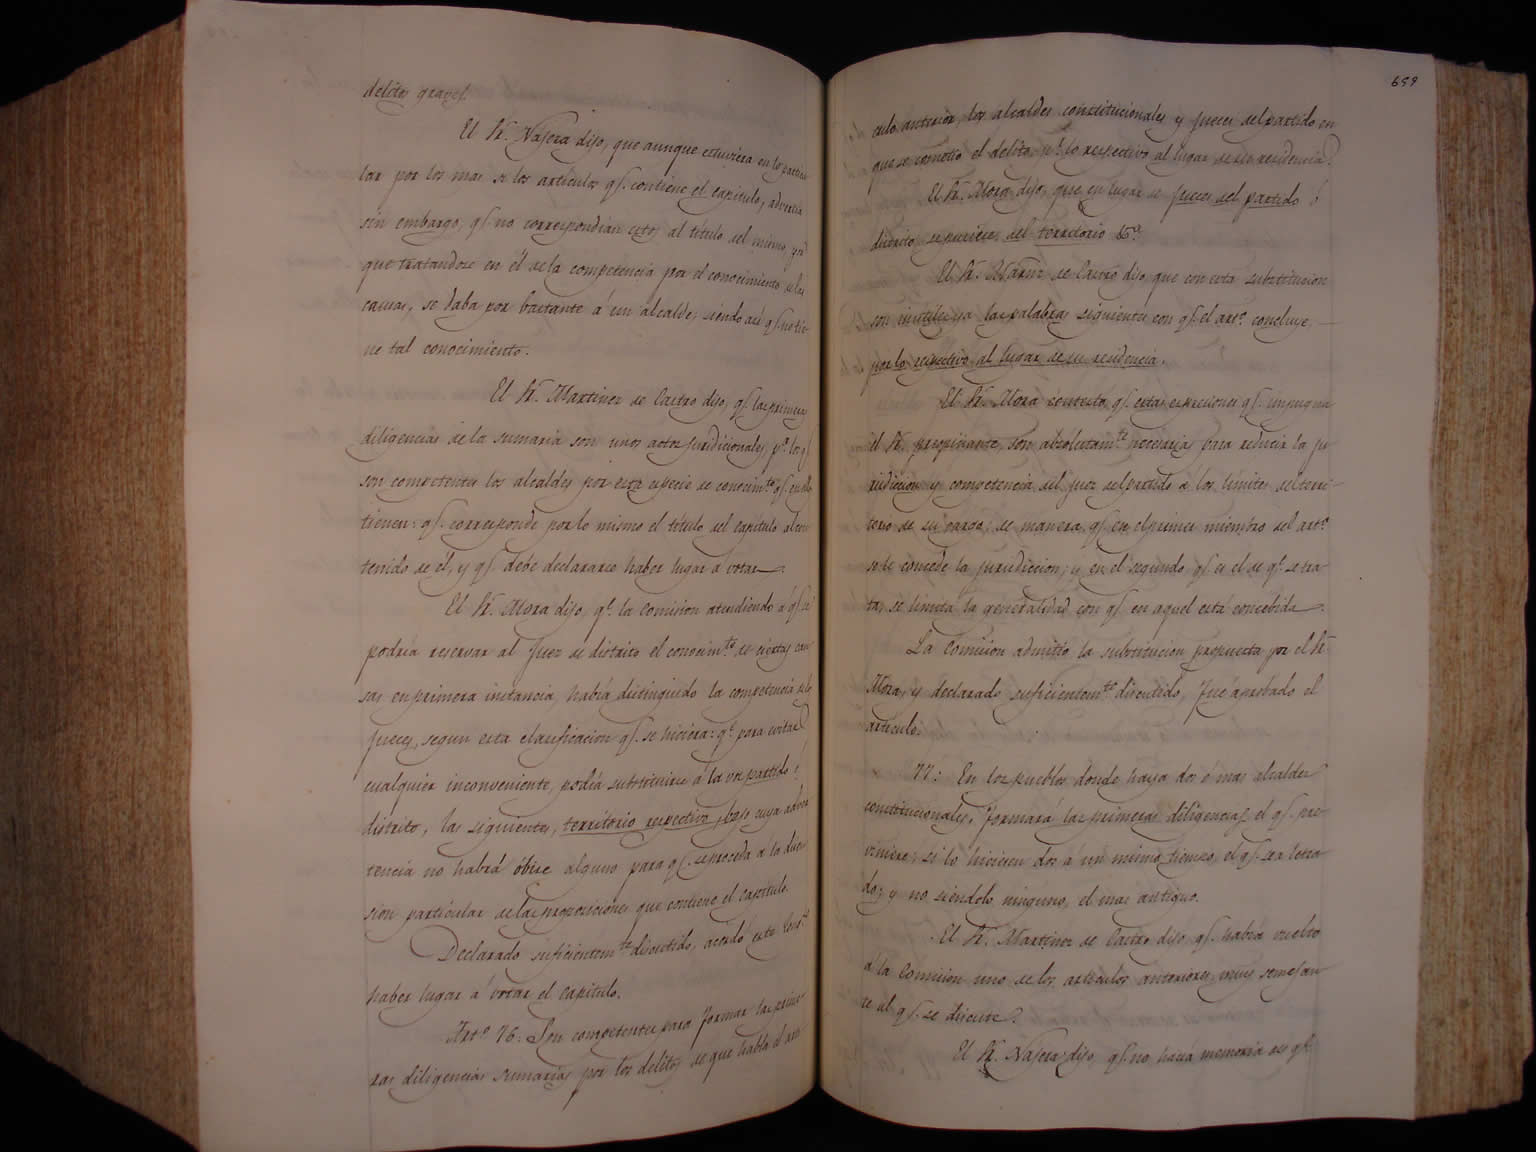 delitos graves.
El Sr. Najera dijo, que aunque estuviera en lo particu
lar por los mas de los articulos qe. contiene el capitulo, advertia
sin embargo, qe. no correspondian estos al título del mismo, por
que tratandose en él de la competencia por el conocimiento de las
causas, se daba por bastante á un alcalde, siendo asi qe. no tie-
ne tal conocimiento.
El Sr. Martinez de Castro dijo, qe. las primeras
diligencias de la sumaria son unos actos jurídicionales, pa. los qe.
son competentes los alcaldes por esta especie de conocimto. qe. en ello
tienen: qe. corresponde por lo mismo el título del capitulo al con
tenido de él, y qe. debe declararse haber lugar á votar.
El Sr. Mora dijo, qe. la comision atendiendo á qe. se
podria reservar al Juez de distrito el conocimto. de ciertas cau
sas en primera instancia, habia distinguido la competencia de los
jueces, segun esta clasificacion qe. se hiciera: qe. para evitar
cualquier inconveniente, podia substituirse á la voz partido ó
distrito, las siguientes, territorio respectivo, bajo cuya adver
tencia no habrá óbice alguno para qe. se proceda á la discu
sion particular de las proposiciones que contiene el capitulo.
Declarado suficientemte. discutido, acordó este Congto.
haber lugar á votar el capitulo.
Arto. 76. Son competentes para formar las prime
ras diligencias sumarias por los delitos de que habla el arti
659
culo anterior, los alcaldes constitucionales y jueces del partido en
que se cometio el delito, pr. lo respectivo al lugar de su residencia.
El Sr. Mora dijo, que en lugar de jueces del partido ó
distrito, se pusiese, del territorio &a.
El Sr. Martinez de Castro dijo que con esta substitucion
son inutiles ya las palabras siguientes con qe. el arto. concluye,
por lo respectivo al lugar de su residencia.
El Sr. Mora contestó, qe. estas expresiones qe. impugna
el Sr. preopinante, son absolutamte. necesarias para reducir la ju
risdiccion y competencia del juez del partido á los límites del terri-
torio de su cargo; de manera qe. en el primer miembro del arto.
se le concede la jurisdiccion, y en el segundo qe. es el de qe. se tra
ta, se limita la generalidad con qe. en aquel está concebida.
La Comision admitió la substitucion propuesta por el Sr.
Mora, y declarado suficientemte. discutido, fué aprobado el
articulo.
77: En los pueblos donde haya dos ó mas alcaldes
constitucionales, formará las primeras diligencias el qe. pre-
viniere; si lo hicieren dos á un mismo tiempo, el qe. sea letra
do; y no siendolo ninguno, el mas antiguo.
El Sr. Martinez de Castro dijo, qe. habia vuelto
á la Comision uno de los articulos anteriores, muy semejan
te al qe. se discute.
El Sr. Najera dijo, qe. no hacía memoria de qe.